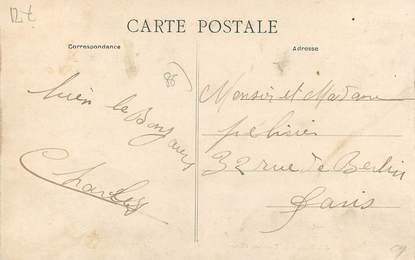 R-t
CARTE POSTALE
Correspondance
Adresse
86
bien le Bonjour
Charles
Monsieur et Madame
pelissier
32 rue de Berlin
Paris